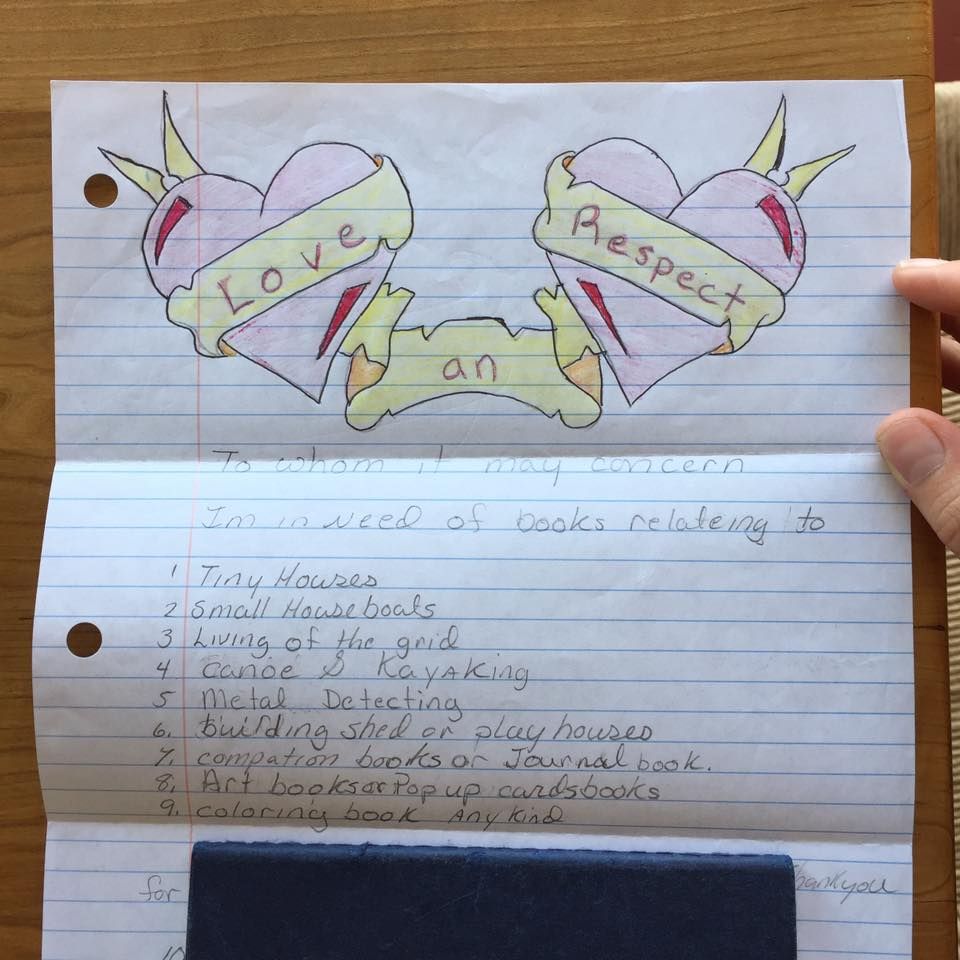 Love
Respect
an
To whom it may concern
Im in Need of books relateing to
1 Tiny Houzes
2 Small Houseboats
3 Living of the grid
4 Canoe & Kayaking
5 Metal Detecting
6. building shed or play houzes
7. compation books or Journal book.
8. Art books or Pop up cards books
9. coloring book Any Kind
for Thankyou
10